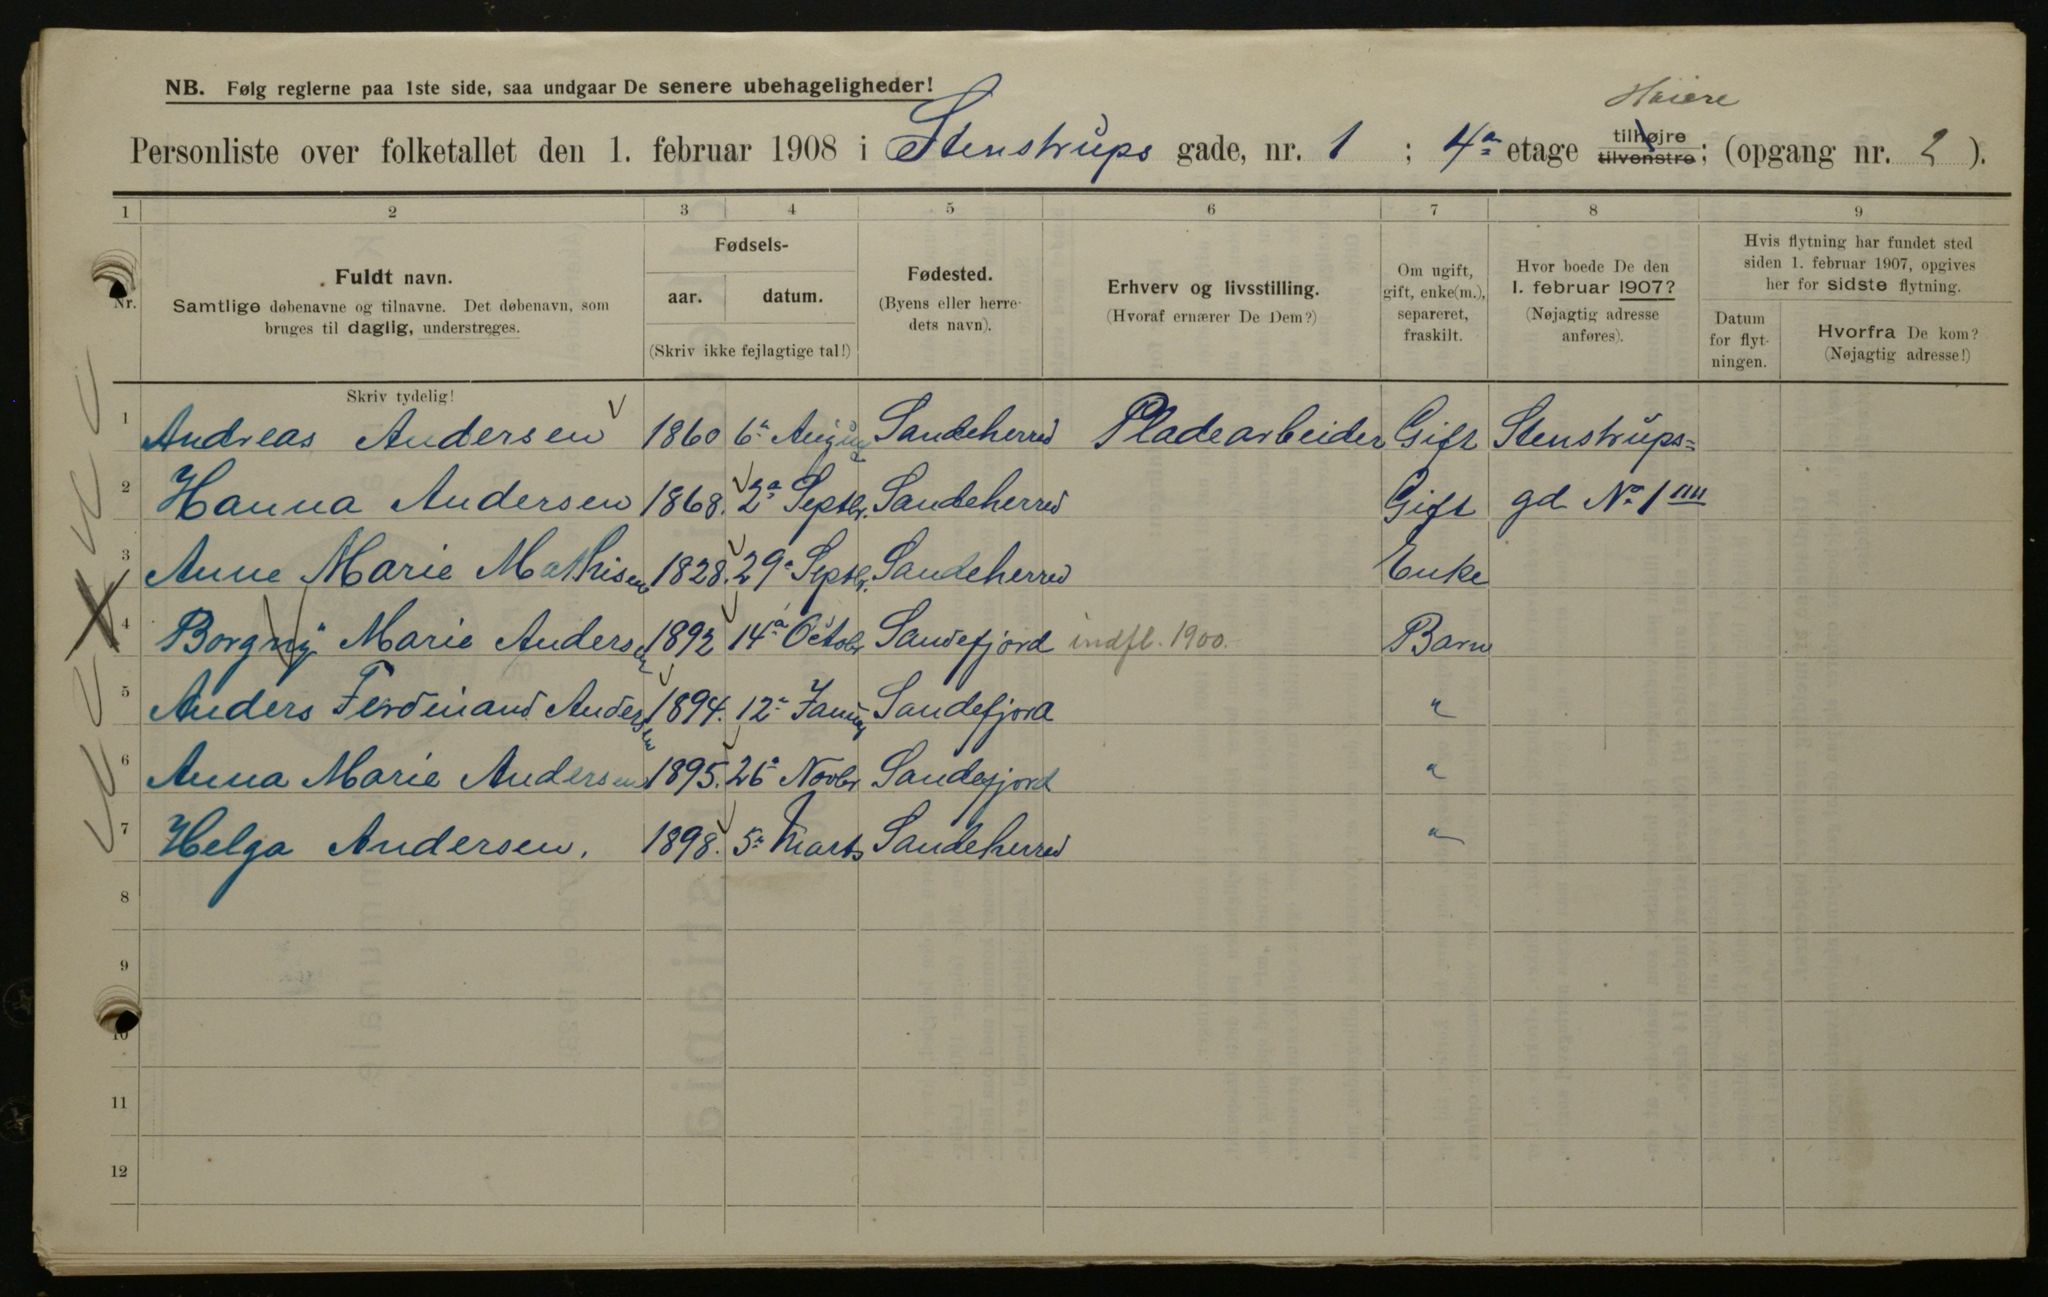 NB. Følg reglerne paa 1ste side, saa undgaar De senere ubehageligheder!
Høiere
Personliste over folketallet den 1. februar 1908 i Stenstrups gade, nr. 1 ; 4a etage tilhøjre tilvenstre; (opgang nr. 2 ).
1 2 3 4 5 6 7 8 9
Nr.
Fuldt navn.
Samtlige døbenavne og tilnavne. Det døbenavn, som
bruges til daglig, understreges.
Fødsels-
aar. datum.
(Skriv ikke fejlagtige tal!)
Fødested.
(Byens eller herre-
dets navn).
Erhverv og livsstilling.
(Hvoraf ernærer De Dem?)
Om ugift,
gift, enke(m.),
separeret,
fraskilt.
Hvor boede De den
1. februar 1907?
(Nøjagtig adresse
anføres).
Hvis flytning har fundet sted
siden 1. februar 1907, opgives
her for sidste flytning.
Datum
for flyt-
ningen.
Hvorfra De kom?
(Nøjagtig adresse!)
Skriv tydelig!
1 Andreas Andersen 1860 6a August Sandeherred Pladearbeider Gift Stenstrups=
2 Hanna Andersen 1868. 2a Septbr. Sandeherred Gift gd No 1 IIII
3 Anne Marie Mathisen 1828. 29a Septbr. Sandeherred Enke
4 Borgny Marie Andersen 1892 14a Octobr Sandefjord indfl. 1900. Barn
5 Anders Ferdinand Andersen 1894. 12a Januar Sandefjord "
6 Anna Marie Andersen 1895. 26a Novbr Sandefjord "
7 Helga Andersen. 1898. 5a Marts Sandeherred "
8
9
10
11
12